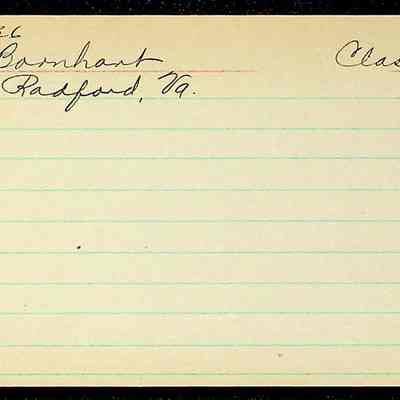 26
Barnhart Clas
Radford, Va.